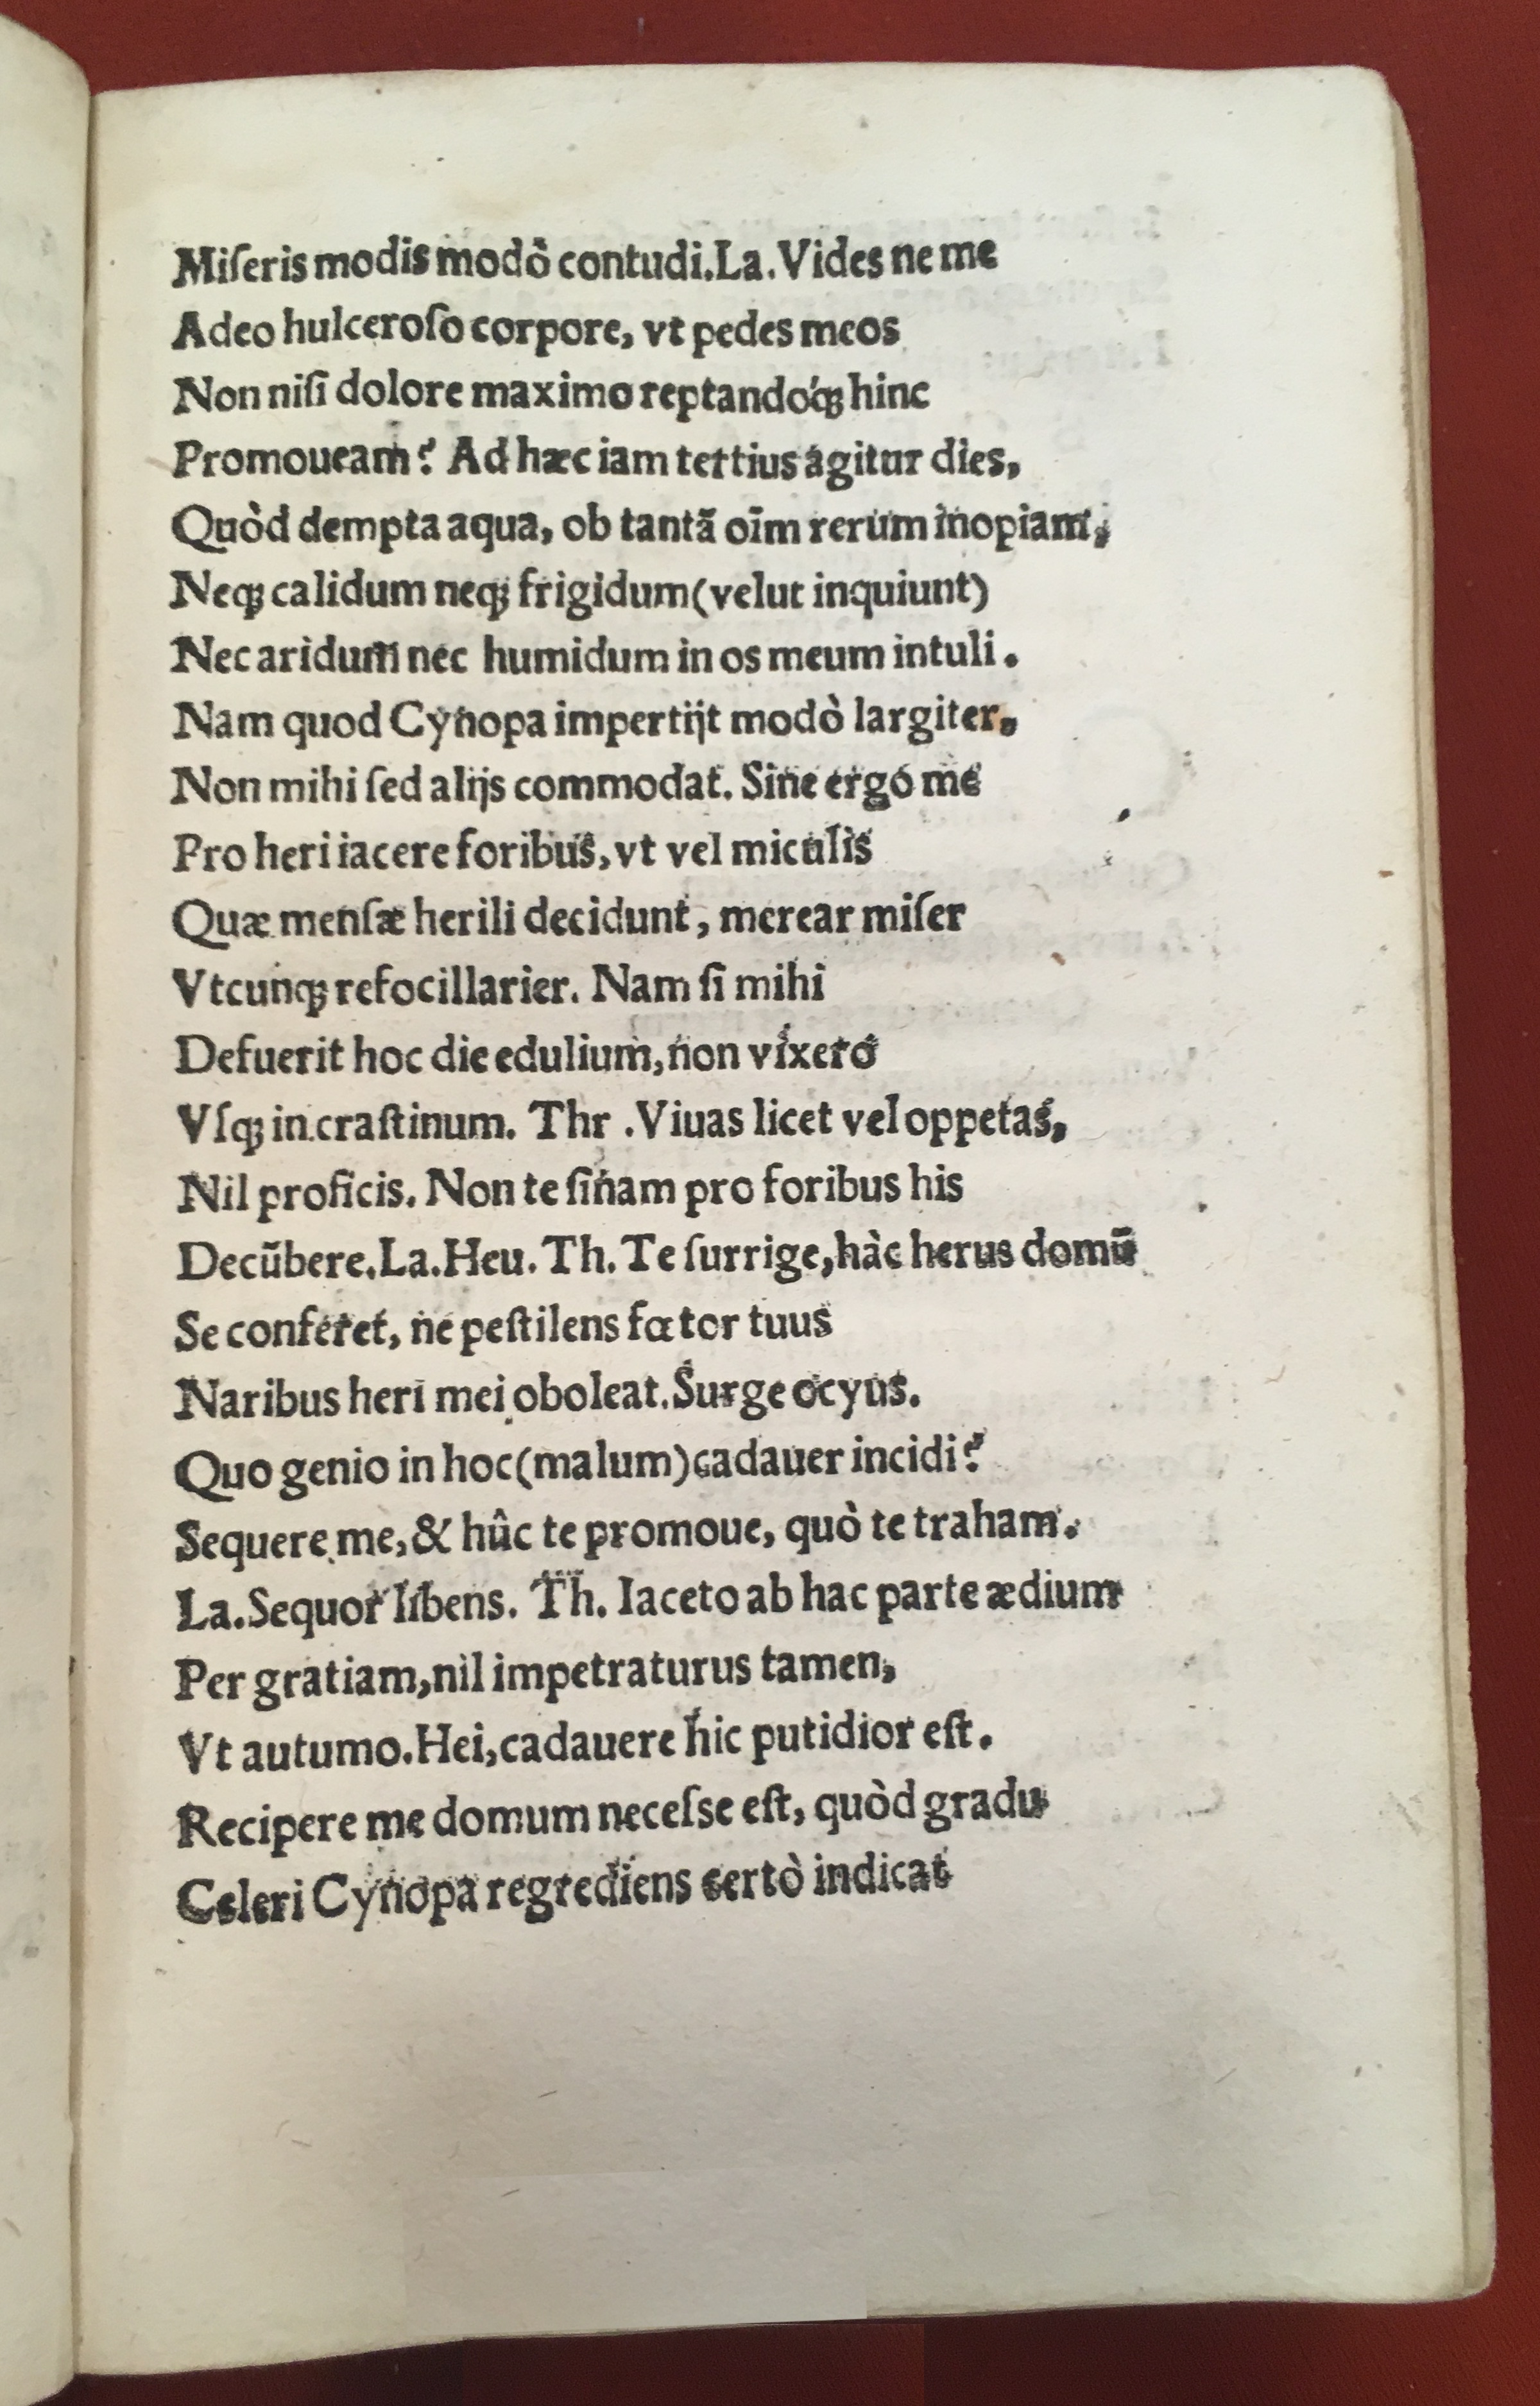 Miſeris modis modò contudi.La.Vides ne me
Adeo hulceroſo corpore, vt pedes meos
Non niſi dolore maximo reptandóq; hinc
Promoueam? Ad hæc iam tertius agitur dies,
Quòd dempta aqua, ob tantã oĩm rerum inopiam,
Neq; calidum neq; frigidum(velut inquiunt)
Nec aridum nec humidum in os meum intuli.
Nam quod Cynopa impertijt modò largiter,
Non mihi ſed alijs commodat. Sine ergo me
Pro heri iacere foribus, vt vel miculis
Quæ menſæ herili decidunt, merear miſer
Vtcunq; refocillarier. Nam ſi mihi
Defuerit hoc die edulium, non vixero
Vſq; in craſtinum. Thr .Viuas licet vel oppetas,
Nil proficis. Non te ſinam pro foribus his
Decũbere.La.Heu. Th. Te ſurrige,hàc herus domũ
Se conferet, ne peſtilens fœtor tuus
Naribus heri mei oboleat.Surge ocyus.
Quo genio in hoc(malum)cadauer incidi?
Sequere me,& hûc te promoue, quò te traham.
La.Sequor libens. Th. Iaceto ab hac parte ædium
Per gratiam,nil impetraturus tamen,
Vt autumo.Hei,cadauere hic putidior eſt.
Recipere me domum neceſse eſt, quòd gradu
Celeri Cynopa regrediens certò indicat